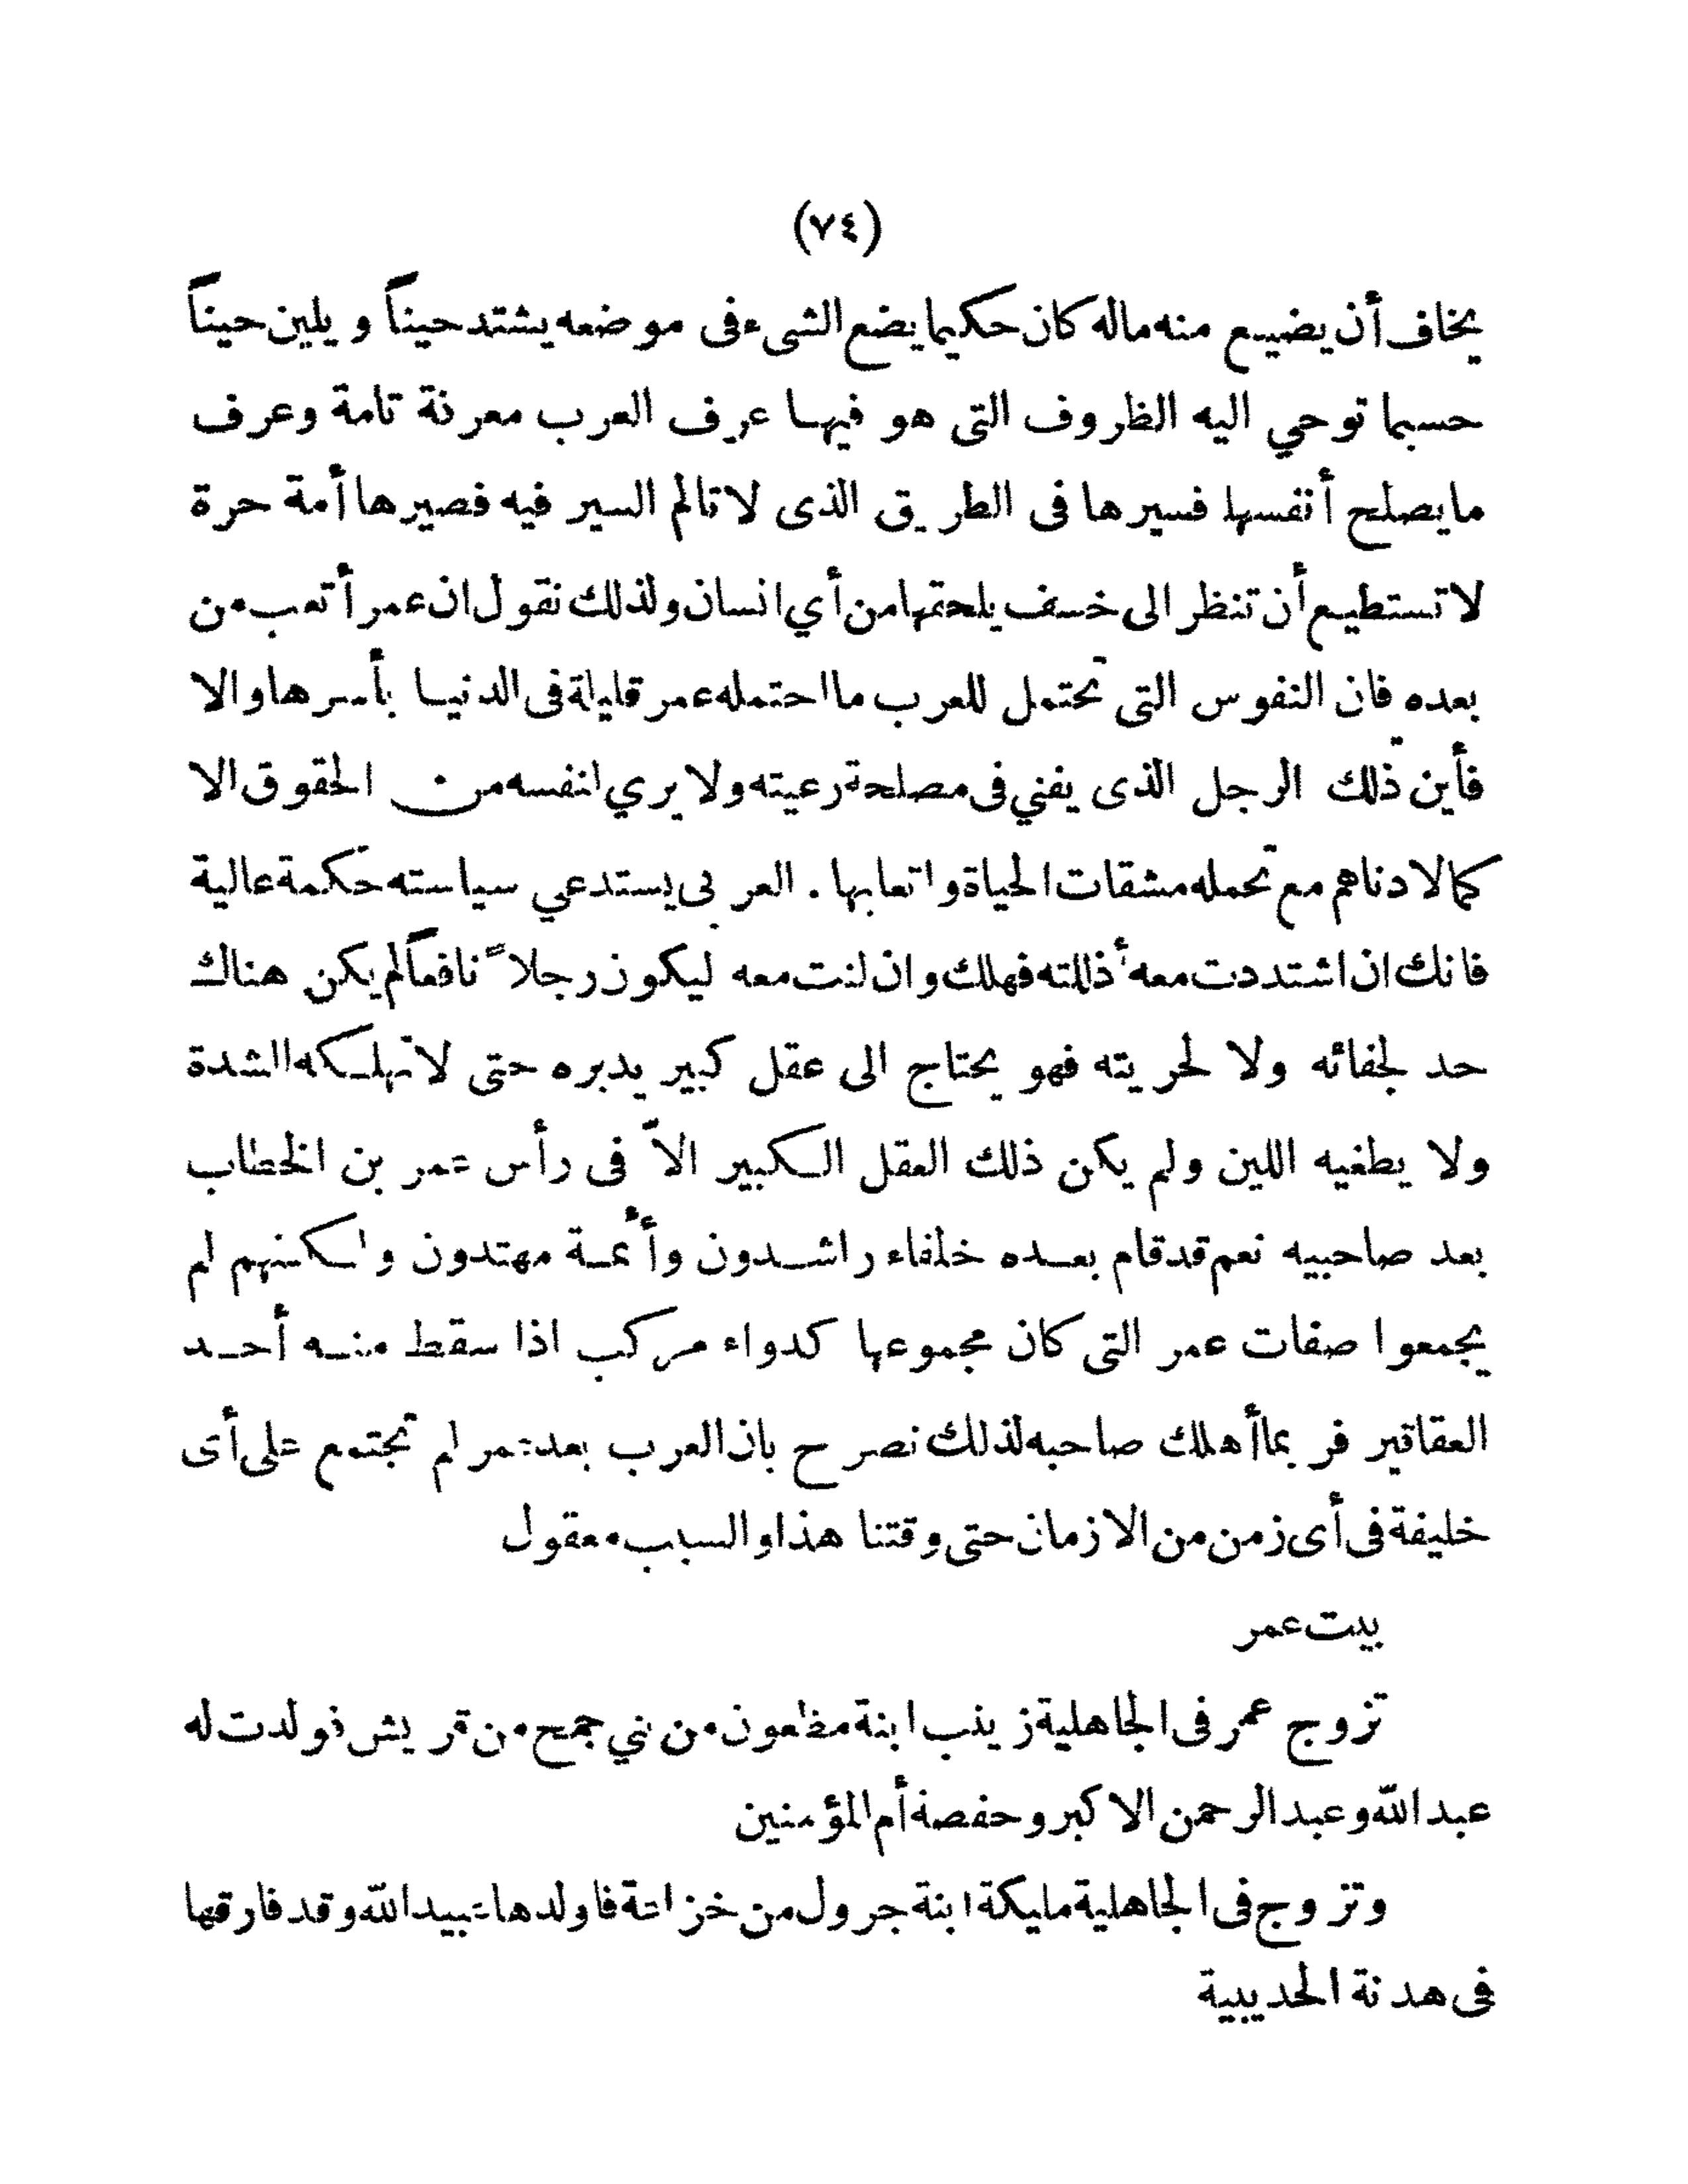 (٧٤)
يخاف أن يضيع منه ماله كان حكيما يضع الشىء فى موضعه يشتد حيناً ويلين حيناً
حسبما توحي اليه الظروف التى هو فيها عرف العرب معرفة تامة وعرف
ما يصلح أنفسها فسيرها فى الطريق الذى لا تألم السير فيه فصيرها أمة حرة
لا تستطيع أن تنظر الى خسف يلحقها من أي انسان ولذلك نقول ان عمر أتعب من
بعده فان النفوس التى تحتمل للعرب ما احتمله عمر قليلة فى الدنيا بأسرها والا
فأين ذلك الرجل الذى يفني فى مصلحة رعيته ولا يري لنفسه من الحقوق الا
كما لادناهم مع تحمله مشقات الحياة واتعابها . العربى يستدعي سياسته حكمة عالية
فانك ان اشتددت معه أذللته فهلك وان لنت معه ليكون رجلاً نافعاً لم يكن هناك
حد لجفائه ولا لحريته فهو يحتاج الى عقل كبير يدبره حتى لا تهلكه الشدة
ولا يطغيه اللين ولم يكن ذلك العقل الكبير الاّ فى رأس عمر بن الخطاب
بعد صاحبيه نعم قد قام بعده خلفاء راشدون وأئمة مهتدون ولكنهم لم
يجمعوا صفات عمر التى كان مجموعها كدواء مركب اذا سقط منه أحد
العقاقير فربما أهلك صاحبه لذلك نصرح بان العرب بعد عمر لم تجتمع على أى
خليفة فى أى زمن من الازمان حتى وقتنا هذا والسبب معقول
بيت عمر
تزوج عمر فى الجاهلية زينب ابنة مظعون من بني جمح من قريش فولدت له
عبد الله وعبد الرحمن الاكبر وحفصة أم المؤمنين
وتزوج فى الجاهلية مليكة ابنة جرول من خزاعة فاولدها عبيد الله وقد فارقها
فى هدنة الحديبية